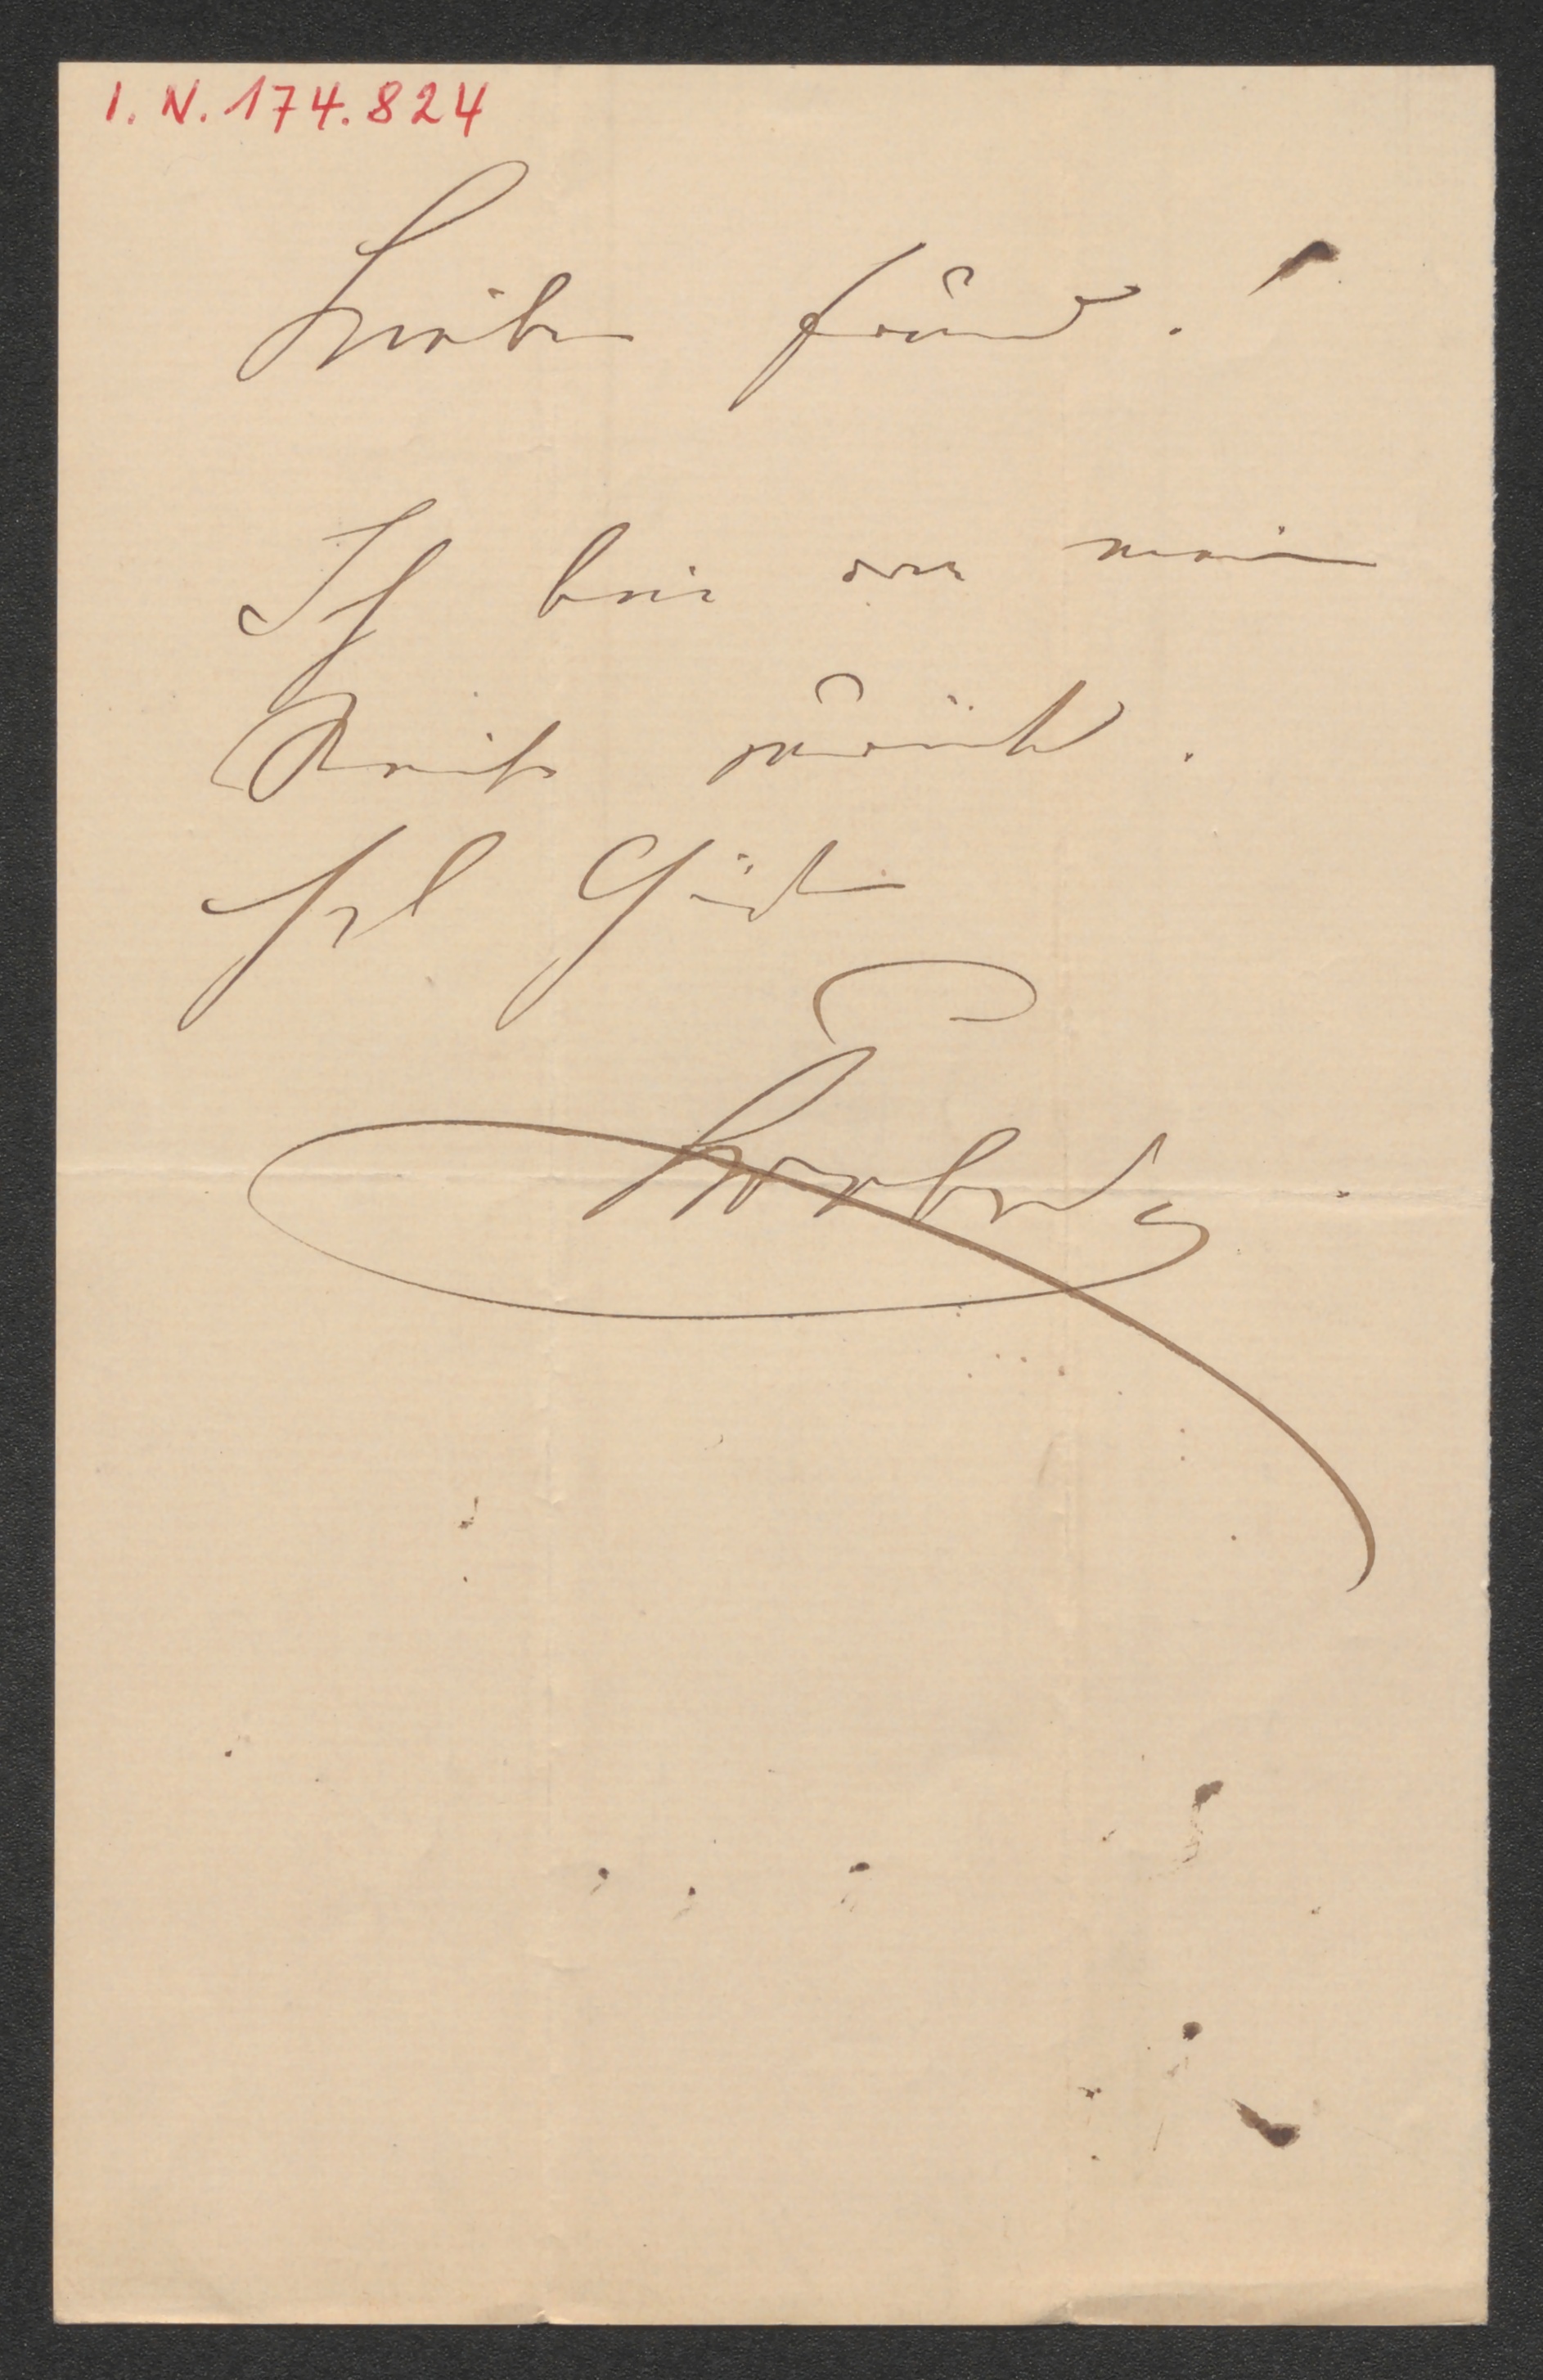 I. N. 174.824
Lieber Freund!
Ich bin von meiner
Reise zurück.
Hzl Grüße